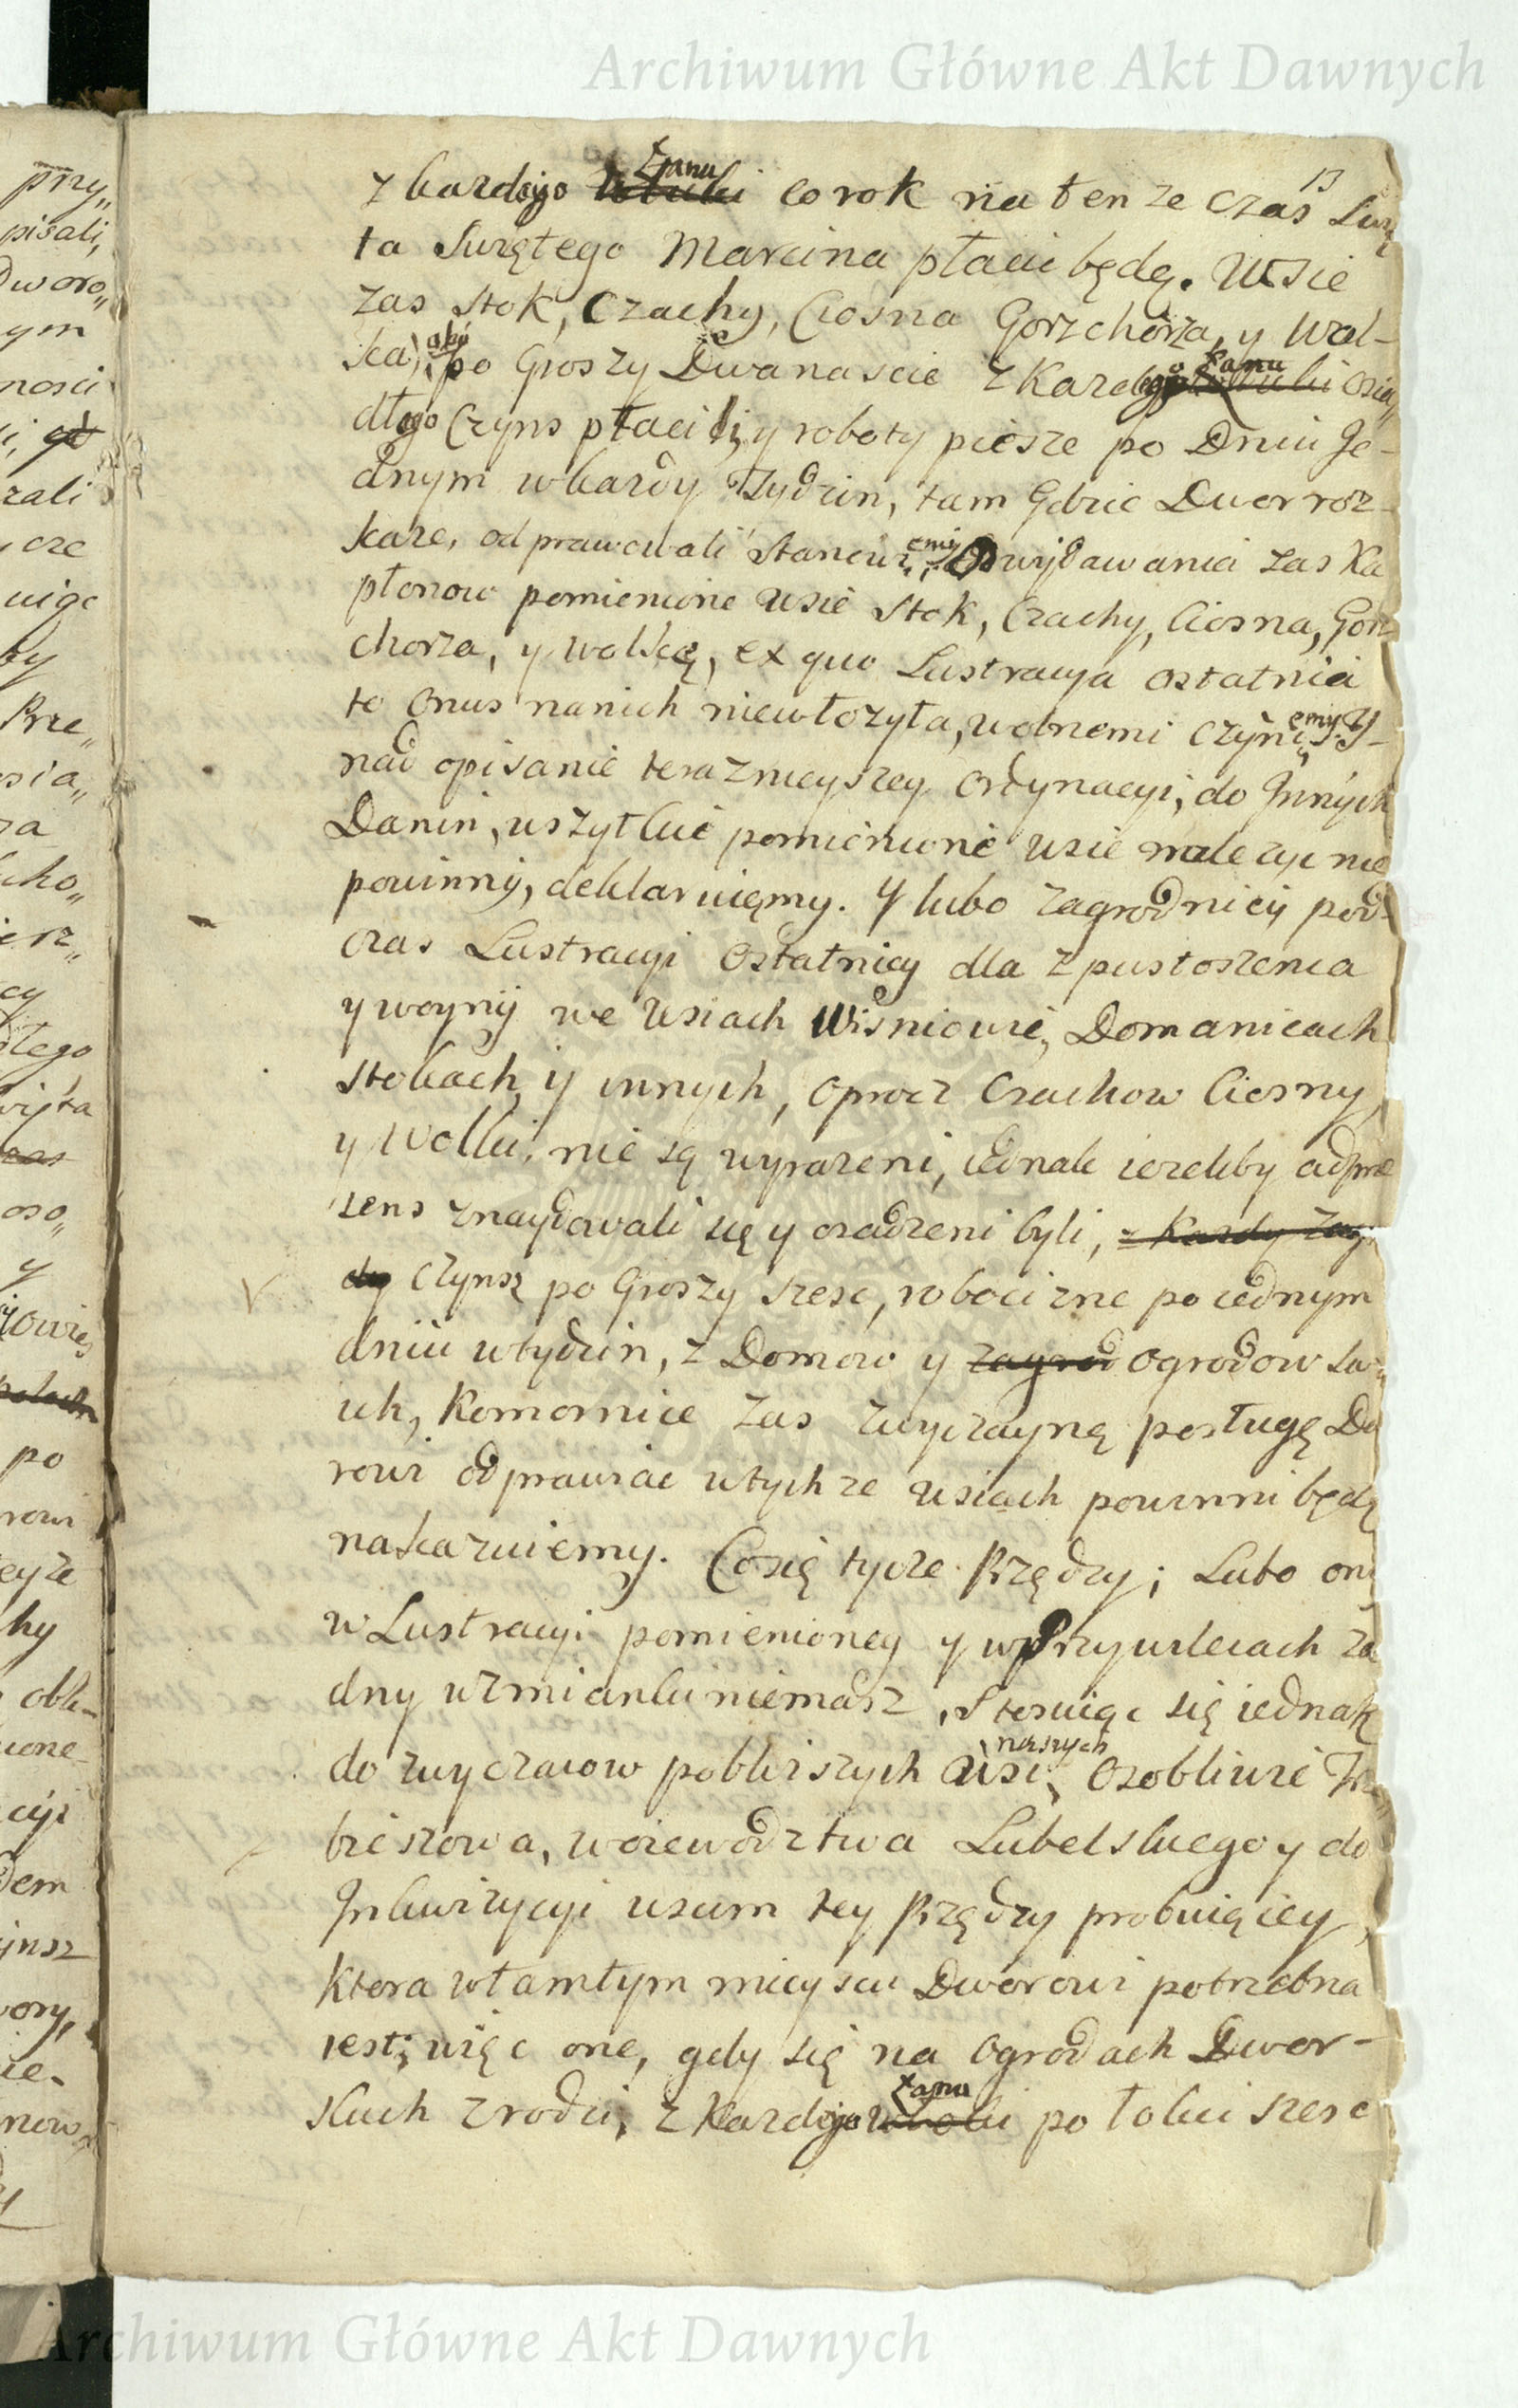 Archiwum Główne Akt Dawnych
13
z kazdego włuki Łanu co rok na ten ze czas Swię
ta Swiętego Marcina płacic będą. Wsie
zas Stok, Czachy, Ciosna Gorzchorza, y Wol-
ka, aby po Groszy Dwanascie z Kazdego Łanu osia„
dłego Czyns płacili, y roboty piesze po Dniu Je-
dnym w kazdy Tydzien, tam Gdzie Dwor roz-
kaze, odprawowali stanowiemy. Od wydawania zas Ka
płonow pomienione Wsie Stok, Czachy, Ciosna, Gorz
chorza, y Wolkę, ex quo Lustracya ostatnia
to onus na nich niewłozyła, wolnemi czyniemy. Y
nad opisanie teraznieyszey Ordynacyi, do Innych
Danin, wszytkie pomienione wsie nalezyc nie
powinny, deklaruiemy. Y lubo Zagrodnicy pod-
czas Lustracyi Ostatniey dla zpustoszenia
y woyny we Wsiach Wisniowie, Domanicach
Stokach, y innych, oprocz Czachow Ciosny,
y Wolki, nie są wyrazeni, iednak iezeliby adprae
sens znaydowali się y osadzeni byli, Kazdy Zag
dy Czynsz po Groszy szesc, robocizne po iednym
dniu w tydzien, z Domow y Zagrod ogrodow swo„
ich, Komornice zas zwyczayną posługę Dwo
rowi odprawiac w tychze wsiach powinni będą
nakazuiemy. Co się tycze Przędzy; Lubo oney
w Lustracyi pomienioney y w Przywileiach ża
dny wzmianki niemasz, Stosuiąc się iednak
do zwyczaiow poblizszych naszych Wsi, Osobliwie Trze
bieszowa, woiewodztwa Lubelskiego y do
Inkwizycyi usum tey Przędzy probuiącey,
Ktora w tamtym mieyscu Dworowi potrzebna
iest; więc one, gdy się na Ogrodach Dwor-
skich zrodzi, z Kazdego włoki Łanu po łokci szesc
Archiwum Główne Akt Dawnych